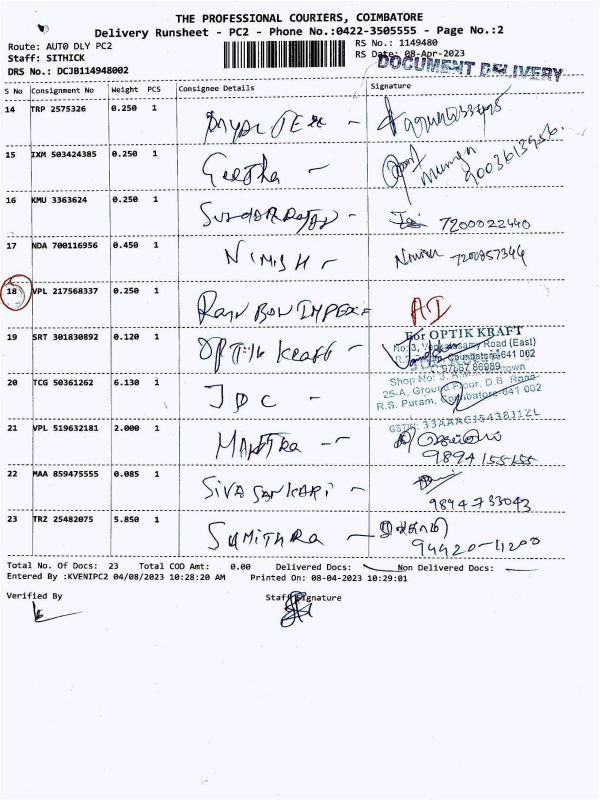 THE PROFESSIONAL COURIERS, COIMBATORE
Delivery Runsheet - PC2 - Phone No.:0422-3505555 - Page No.:2
Route: AUTO DLY PC2
RS No.: 1149480
Staff: SITHICK
RS Date: 08-Apr-2023
DRS No.: DCJB114948002
DOCUMENT DELIVERY
S No Consignment No Weight PCS Consignee Details Signature
14 TRP 2575326 0.250 1
15 IXM 503424385 0.250 1 Geetha -
9003613956.
16 KMU 3363624 0.250 1
7200022440
17 NDA 700116956 0.450 1 NIMISH -
7200857344
18 VPL 217568337 0.250 1 Rain BOW IMPEX AI
19 SRT 301830892 0.120 1 OPTIK Kraft -
For OPTIK KRAFT
No: 3, Venkatasamy Road (East)
Coimbatore-641 002
20 TCG 50361262 6.130 1 JDC -
Shop No: 3,
25-A, Ground Floor, D.B. Road
R.S. Puram, Coimbatore-641 002
21 VPL 519632181 2.000 1 MANTRA -
9894 155155
22 MAA 859475555 0.085 1 SIVASANKARI -
9894733043
23 TRZ 25482075 5.850 1 SUMITHRA -
94420-41200
Total No. Of Docs: 23 Total COD Amt: 0.00 Delivered Docs: Non Delivered Docs:
Entered By :KVENIPC2 04/08/2023 10:28:20 AM Printed On: 08-04-2023 10:29:01
Verified By Staff Signature